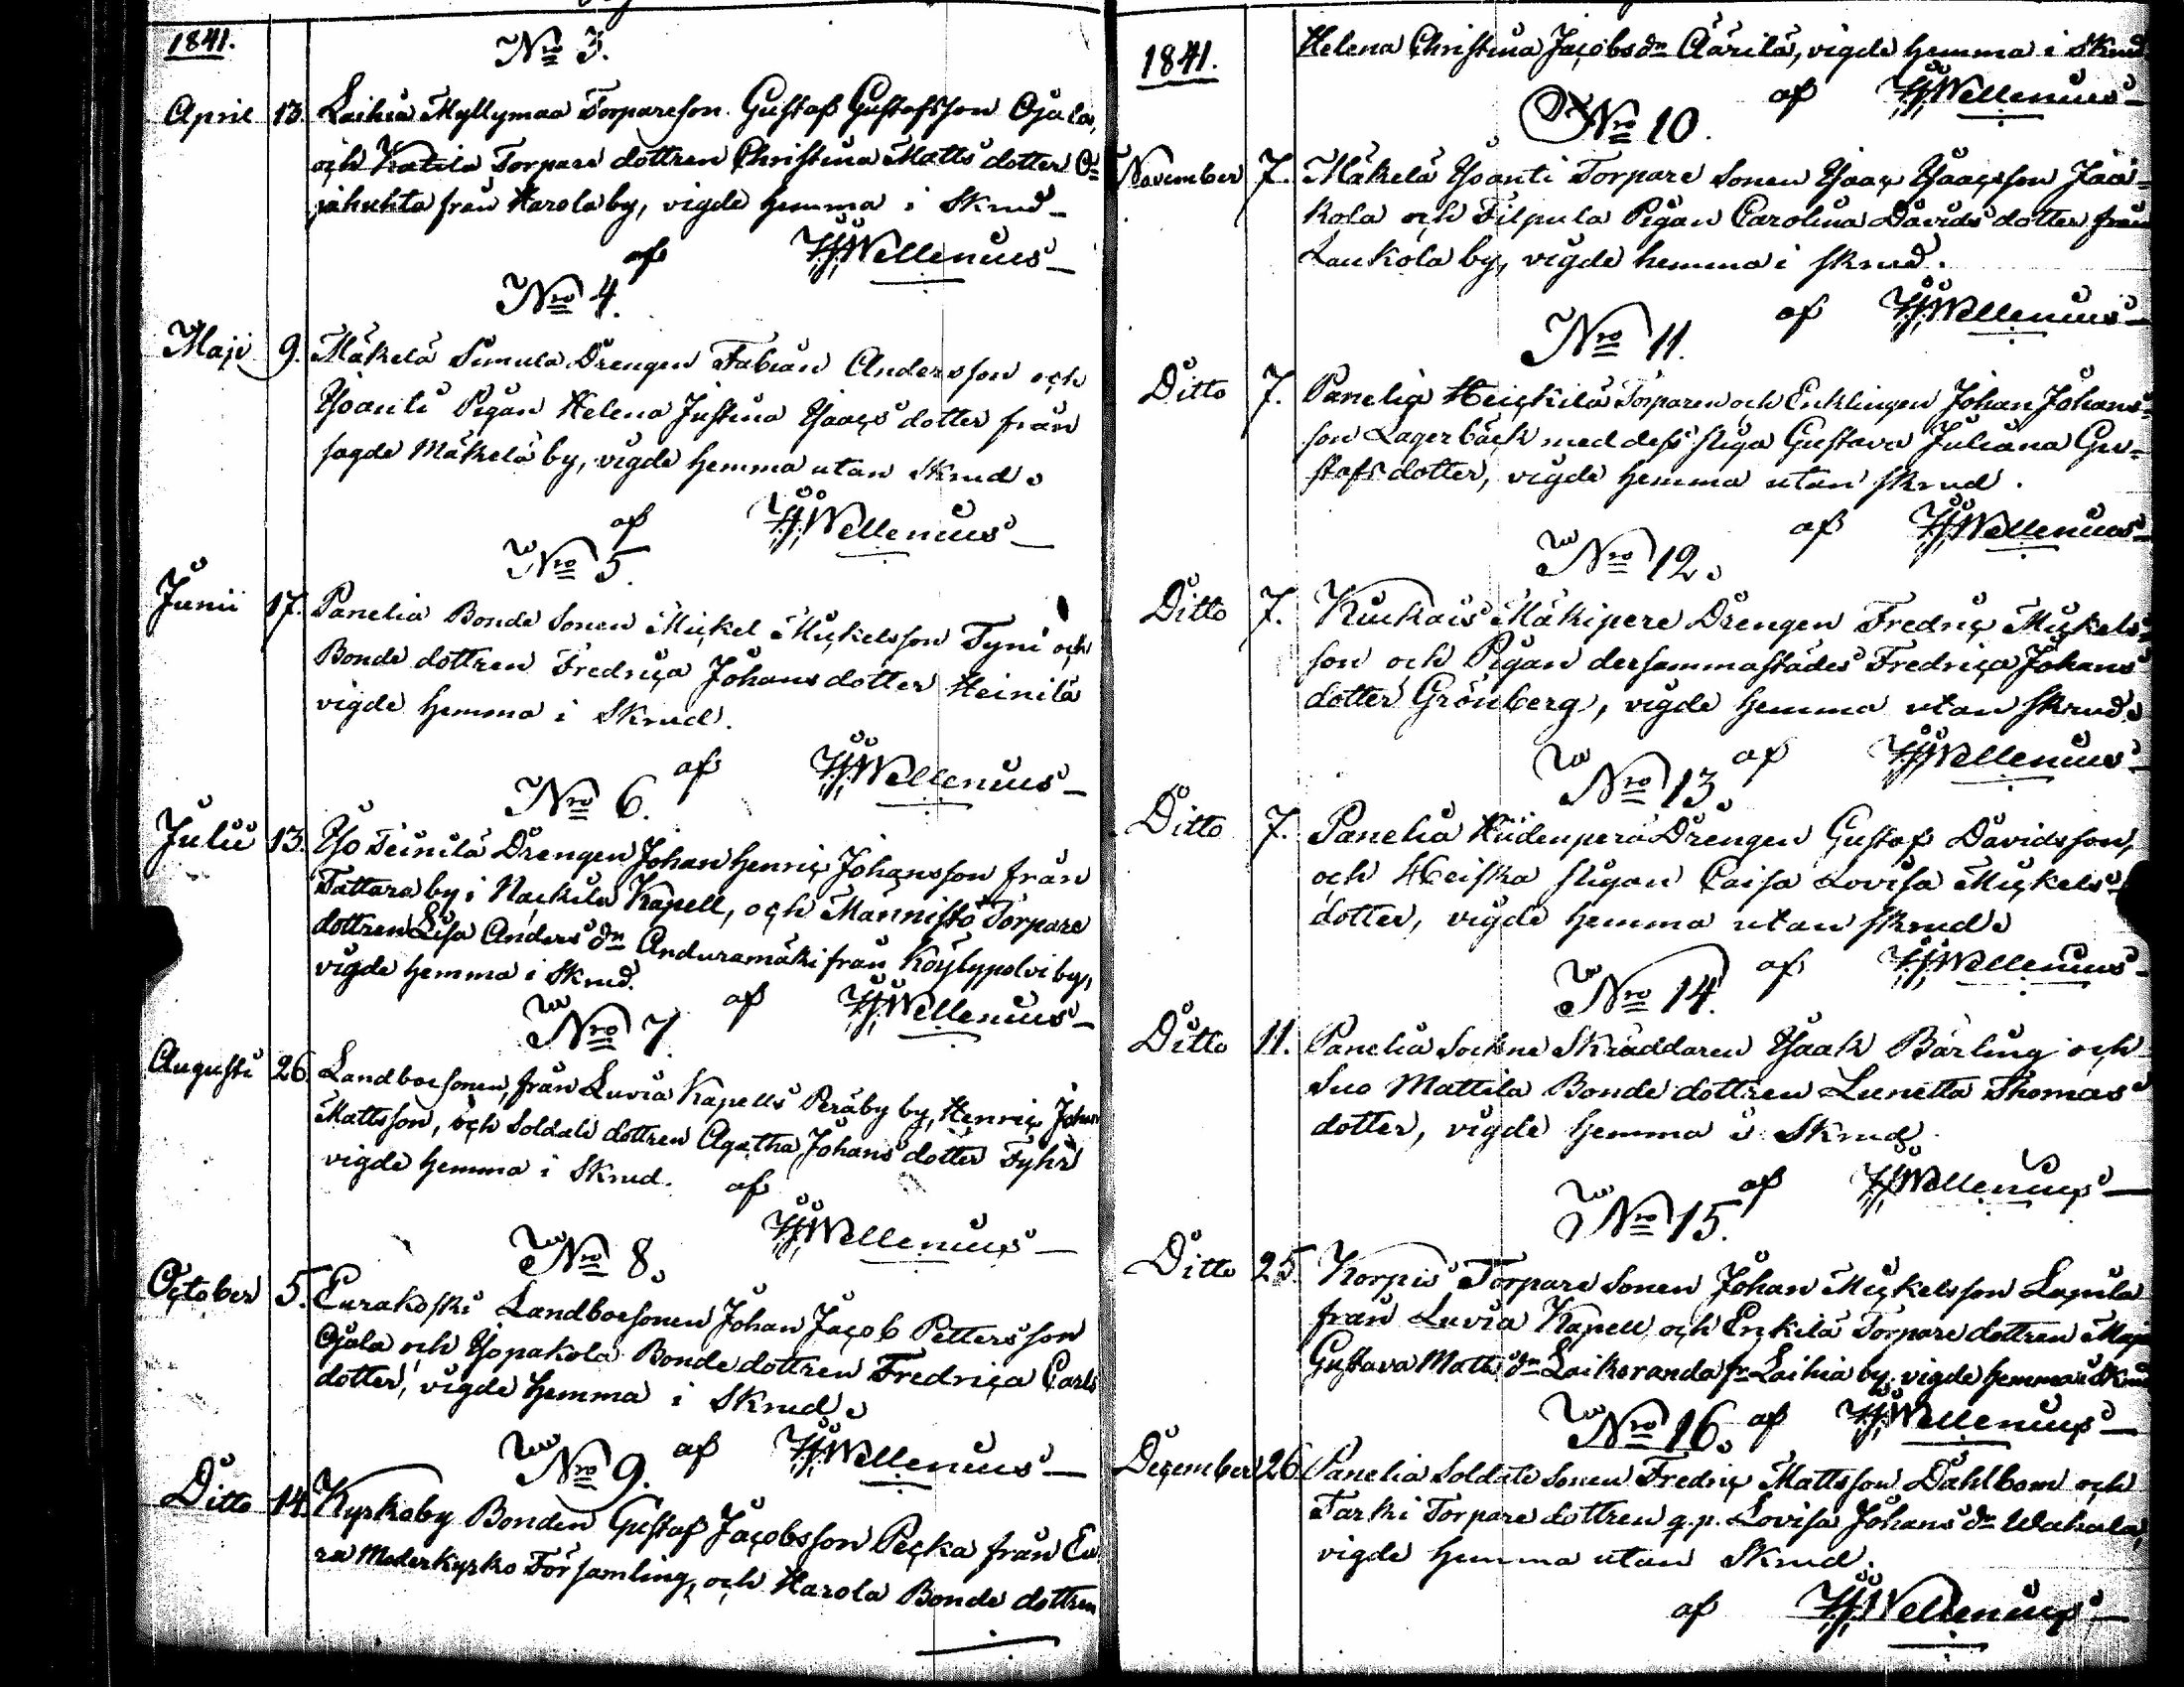 1841.
Nro 3.
April 13. Laihia Myllymaa Torpareson Gustaf Gustafsson Ojala,
och Katila Torpare dottren Christina Matts dotter O=
jahuhta från Harola by, vigde hemma i Skrud
af HJWellenius
Nro 4.
Maji 9. Mäkelä Simula Drengen Fabian Andersson och
Yoanti Pigan Helena Justina Ysaacs dotter från
sagde Mäkelä by, vigde hemma utan Skrud.
af HJWellenius
Nro 5.
Junii 17. Panelia Bonde Sonen Mickel Mickelsson Tyni och
Bonde dottren Fredrica Johans dotter Heinilä
vigde hemma i Skrud.
af HJWellenius
Nro 6.
Julii 13. Yso Teinilä Drengen Johan Henric Johansson från
Tattara by i Nackila Kapell, och Männistö Torpare
dottren Lisa Anders dr Anduramäki från Köylypolvi by,
vigde hemma i Skrud.
af HJWellenius
Nro 7
Augusti 26. Landboesonen, från Luvia Kapells Peräby by, Henric Johan
Mattsson, och Soldate dottren Agatha Johans dotter Fyhr
vigde hemma i Skrud.
af HJWellenius
Nro 8.
October 5. Eurakoski Landboesonen Johan Jacob Pettersson
Ojala och Ysopakola Bonde dottren Fredrica Carls
dotter, vigde hemma i Skrud.
af HJWellenius
Nro 9.
Ditto 14. Kyrkoby Bonden Gustaf Jacobsson Pecka från Eu
ra Moderkyrko Församling, och Harola Bonde dottren
1841.
Helena Christina Jacobs dr Äärilä, vigde hemma i Skrud
af HJWellenius
Nro 10.
November 7. Mäkelä Yoanti Torpare Sonen Ysaac Ysaacsson Jaa=
kola och Filpula Pigan Carolina Davids dotter från
Laukola by, vigde hemma i skrud.
af HJWellenius
Nro 11.
Ditto 7. Panelia Heickilä Torparen och Enklingen Johan Johans=
son Lagerbäck med dess piga Gustava Juliana Gu=
stafs dotter, vigde hemma utan skrud.
af HJWellenius
Nro 12.
Ditto 7. Kiuckais Mäkipere Drengen Fredric Mickels=
son och Pigan dersammastädes Fredrica Johans
dotter Grönberg, vigde hemma utan skrud.
af HJWellenius
Nro 13.
Ditto 7. Panelia Hiidenperä Drengen Gustaf Davidsson,
och Heiska pigan Caisa Lovisa Mickels=
dotter, vigde hemma utan skrud.
af HJWellenius
Nro 14.
Ditto 11. Panelia Sockne Skräddaren Ysaak Bärling och
Suo Mattila Bonde dottren Lunetta Thomas
dotter, vigde hemma i Skrud.
af HJWellenius
Nro 15.
Ditto 25. Korpis Torpare Sonen Johan Mickelsson Lapila
från Luvia Kapell och Erkilä Torpare dottren Maja
Gustava Matts dr Laikoranda fr Laihia by, vigde hemma i Skrud
af HJWellenius
Nro 16.
December 26. Panelia Soldate Sonen Fredric Mattsson Dahlbom och
Tarki Torpare dottren q.p. Lovisa Johans dr Wahala,
vigde hemma utan Skrud.
af HJWellenius